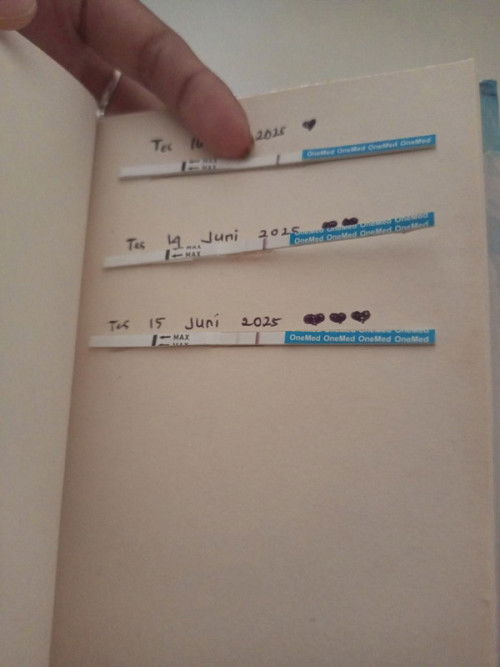 Tes 2025
OneMed OneMed OneMed OneMed
Tes 14 Juni 2025
OneMed OneMed OneMed OneMed
OneMed OneMed OneMed OneMed
← MAX
Tes 15 Juni 2025
← MAX
OneMed OneMed OneMed OneMed